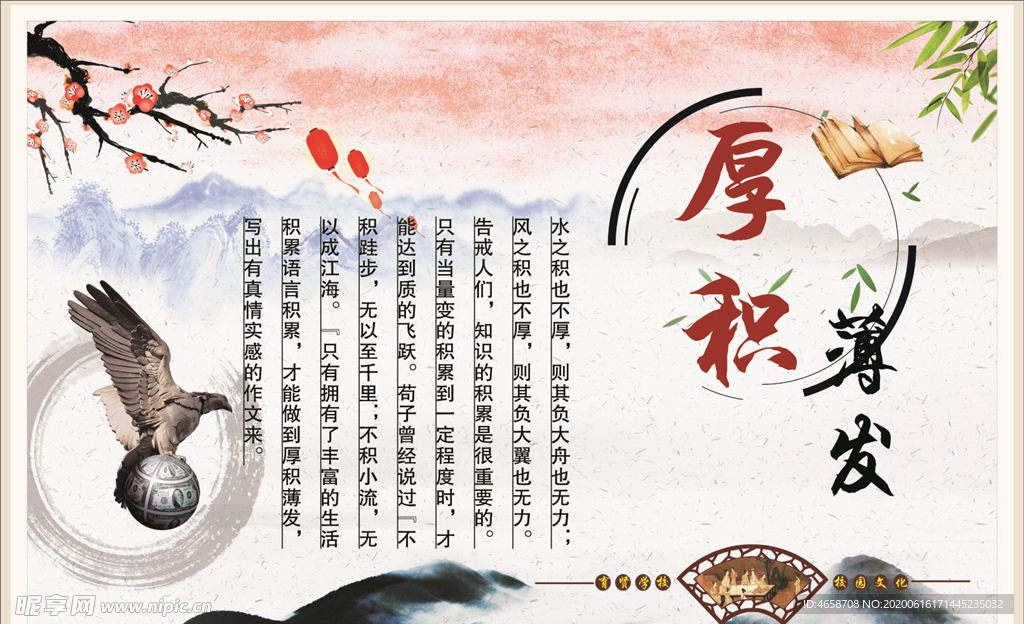 厚积
薄发
水之积也不厚，则其负大舟也无力；
风之积也不厚，则其负大翼也无力。
告戒人们，知识的积累是很重要的。
只有当量变的积累到一定程度时，才
能达到质的飞跃。苟子曾经说过『不
积跬步，无以至千里；不积小流，无
以成江海。『只有拥有了丰富的生活
积累语言积累，才能做到厚积薄发，
写出有真情实感的作文来。
育贤学校
校园文化
昵享网 www.nipic.cn
ID:4658708 NO:20200616171445235032